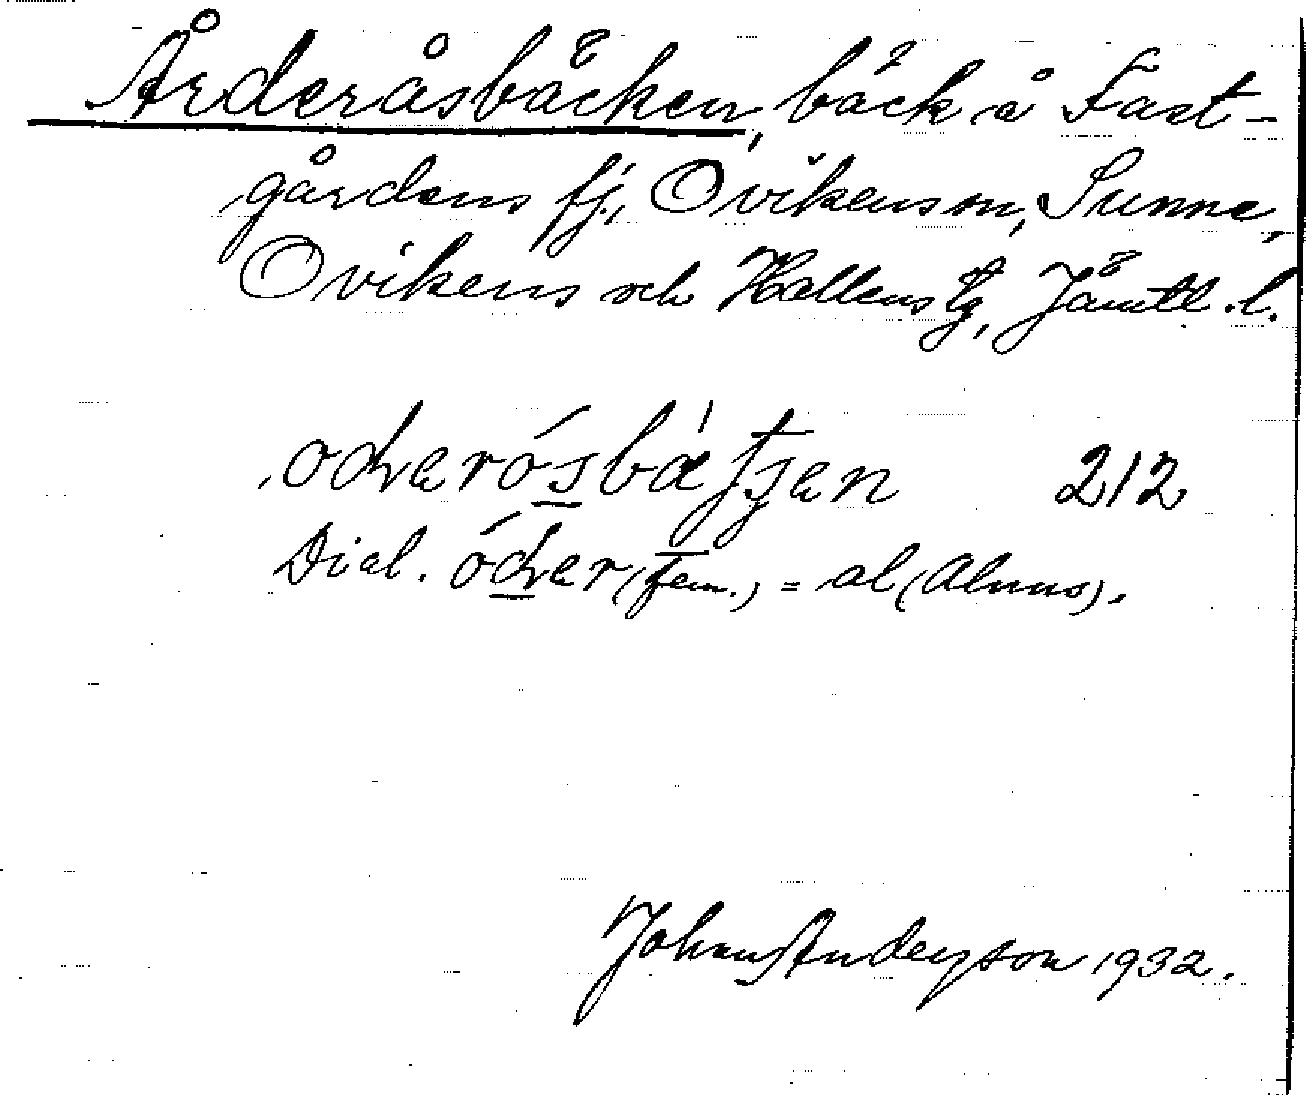 Årderåsbäcken, bäck å Fast-
gårdens fj., Ovikens sn, Sunne,
Ovikens och Hallens tg, Jämtl. l.
oderósbætjen 212
Dial. óder (fem.) = al (Alnus).
Johan Anderson 1932.